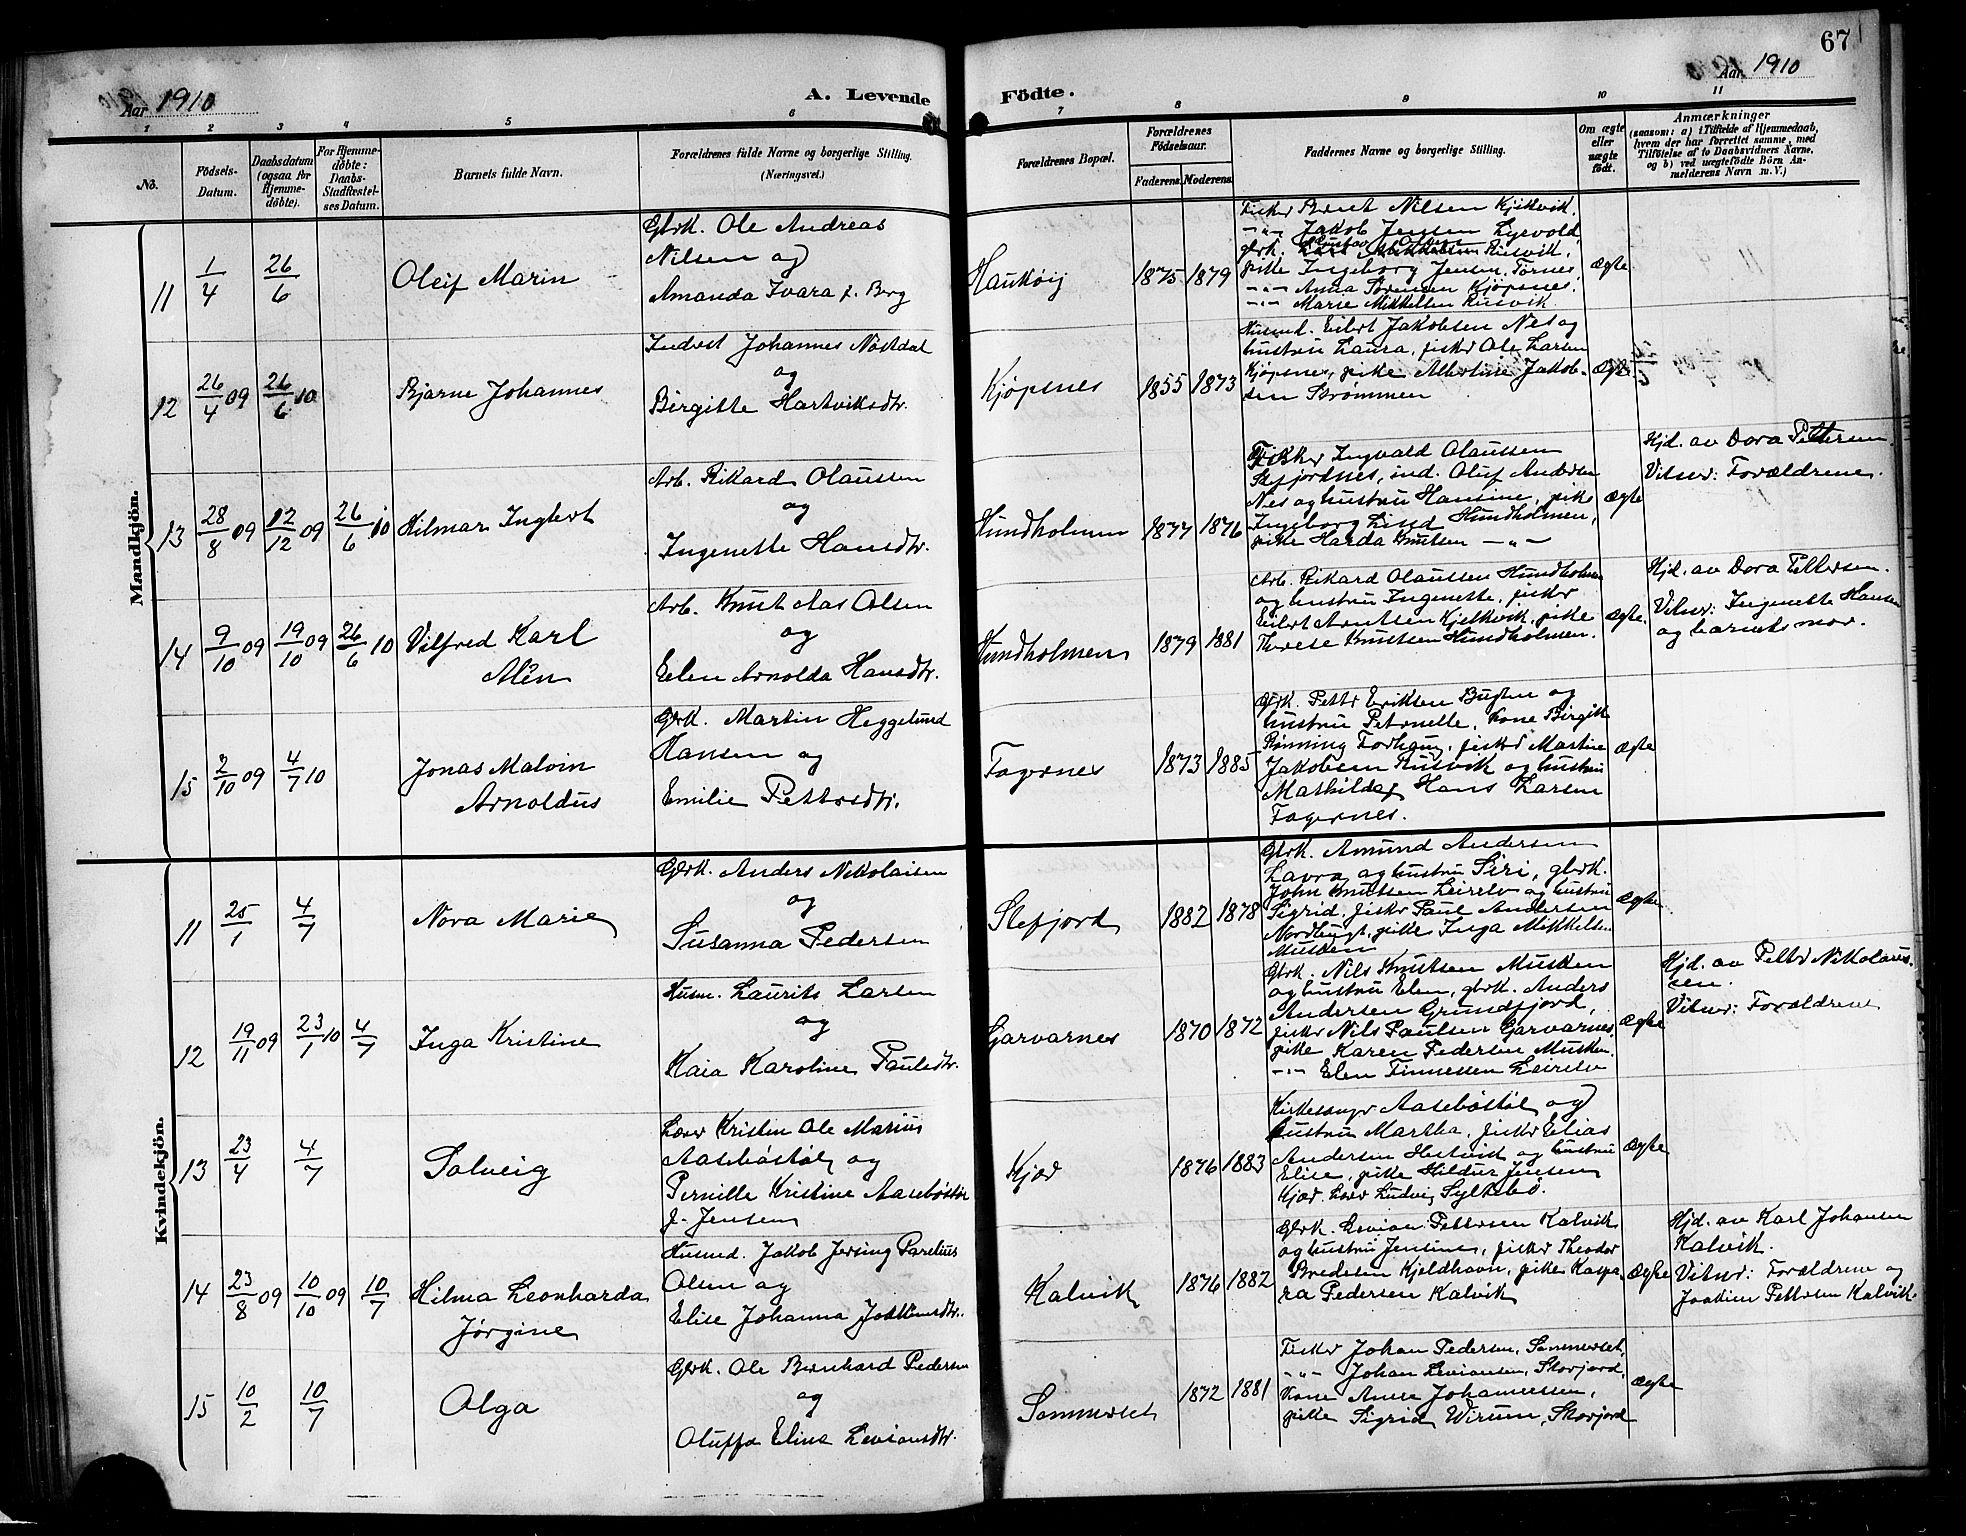 67
Aar 1910
A. Levende Födte.
Aar 1910
1 2 3 4 5 6 7 8 9 10 11
No.
Födsels-
Datum.
Daabsdatum
(ogsaa for
Hjemme-
döbte).
For Hjemme-
döbte:
Daabs-
Stadfæstel-
ses Datum.
Barnets fulde Navn.
Forældrenes fulde Navne og borgerlige Stilling.
(Næringsvei.)
Forældrenes Bopæl.
Forældrenes
Födselsaar.
Faderens. Moderens.
Faddernes Navne og borgerlige Stilling.
Om ægte
eller
uægte
födt.
Anmærkninger
(saasom: a) i Tilfælde af Hjemmedaab,
hvem der har forrettet samme, med
Tilföielse af to Daabsvidners Navne,
og b) ved uægtefödte Börn An-
melderens Navn m. V.)
Mandkjön.
11
1/4
26/6
Oleif Marin
Gbrk. Ole Andreas
Nilsen og
Amanda Ivara f. Berg
Haukøij
1875 1879
Fisker Bernt Nilsen Kjelkvik.
-"- Jakob Jensen Lyrvold,
gbrk. Mikkelsen Rusvik,
pike Ingeborg Jensen Tørnes,
-"- Anna Sørensen Kjøpsnes,
-"- Marie Mikkelsen Rusvik.
Ægte
12
26/4 09
26/6 10
Bjarne Johannes
Indrst Johannes Nøstdal
og
Birgitte Hartviksdtr.
Kjøpsnes
1855 1873
Husmd. Eilert Jakobsen Nes og
hustru Laura, fisker Ole Larsen
Kjøpsnes, pike Albertine Jakob-
sen Strømmen
Ægte
13
28/8 09
12/12 09
26/6 10
Hilmar Inglert
Arb. Rikard Olaussen
og
Ingenette Hansdtr.
Hundholmen
1877 1876
Fisker Ingvald Olaussen
Stefjordnes, ind. Oluf Andersen
Nes og hustru Hansine, pike
Ingeborg Lind Hundholmen,
pike Harda Knutsen -"-
Ægte
Hjd. av Dora Pettersen.
Vitner: Forældrene.
14
9/10 09
19/10 09
26/6 10
Vilfred Karl
Alên
Arb. Knut Aas Olsen
og
Elen Arnolda Hansdtr.
Hundholmen
1879 1881
Arb. Rikard Olaussen Hundholmen
og hustru Ingenette, fisker
Eilert Arntsen Kjelkvik, pike
Therese Knutsen Hundholmen.
Ægte.
Hjd. av Dora Pettersen.
Vitner: Ingenette Hansen
og barnets mor.
15
2/10 09
4/7 10
Jonas Malvin
Arnoldus
Gbrk. Martin Heggelund
Hansen og
Emilie Pettersdtr.
Fagernes
1873 1885
Gbrk. Petter Eriksen Bugten og
hustru Petrnelle, Kone Birgitte
Rønning Forhaug, fisker Martin
Jakobsen Rusvik og hustru
Mathilde, Hans Larsen
Fagernes.
Ægte
Kvindekjön.
11
25/1
4/7
Nora Marie
Gbrk. Anders Nikolaisen
og
Susanna Pedersen
Stefjord
1882 1878
Gbrk. Amund Andersen
Lavra og hustru Siri, gbrk.
John Knutsen Leirelv og hustru
Sigrid, fisker Paul Andersen
Nordbugt, pike Inga Mikkelsen
Musken
Ægte
12
19/11 09
23/1 10
4/7
Inga Kristine
Husm. Laurits Larsen
og
Kaia Karoline Paulsdtr.
Garvarnes
1870 1872
Gbrk. Nils Knutsen Musken
og hustru Elen, gbrk. Anders
Andersen Grundfjord,
fisker Nils Paulsen Garvarnes,
pike Karen Pedersen Musken.
-"- Elen Finnessen Leirelv
Ægte
Hjd. av Petter Nikolaus-
sen.
Vitner: Forældrene
13
23/4
4/7
Solveig
Lærer Kristen Ole Marius
Aasebøstøl og
Pernille Kristine Aasebøstøl
f. Jensen
Kjær
1876 1883
Kirkesanger Aasebøstøl og
hustru Martha, fisker Elias
Andersen Hestvik og hustru
Elise, pike Hildur Jensen
Kjær, Lærer Ludvig Syltebø.
Ægte
14
23/8 09
10/10 09
10/7
Hilma Leonharda
Jørgine
Husmd. Jakob Jersing Parelius
Olsen og
Elise Johanna Jokkumsdtr.
Kalvik
1876 1882
Gbrk. Levian Pettersen Kalvik
og hustru Jensine, fisker Theodor
Bredesen Kjeldhavn, pike Kaspa-
ra Pedersen Kalvik
Ægte
Hjd. av Karl Johansen
Kalvik.
Vitner: Forældrene og
Joakim Pettersen Kalvik.
15
10/2
10/7
Olga
Gbrk. Ole Bernhard Pedersen
og
Oluffa Elina Leviansdtr.
Sommerset
1872 1881
Fisker Johan Pedersen, Sommerset,
-"- Johan Leviansen, Skorjord,
Kone Anne Johannessen,
pike Sigrid Wirum, Skorjord
Ægte